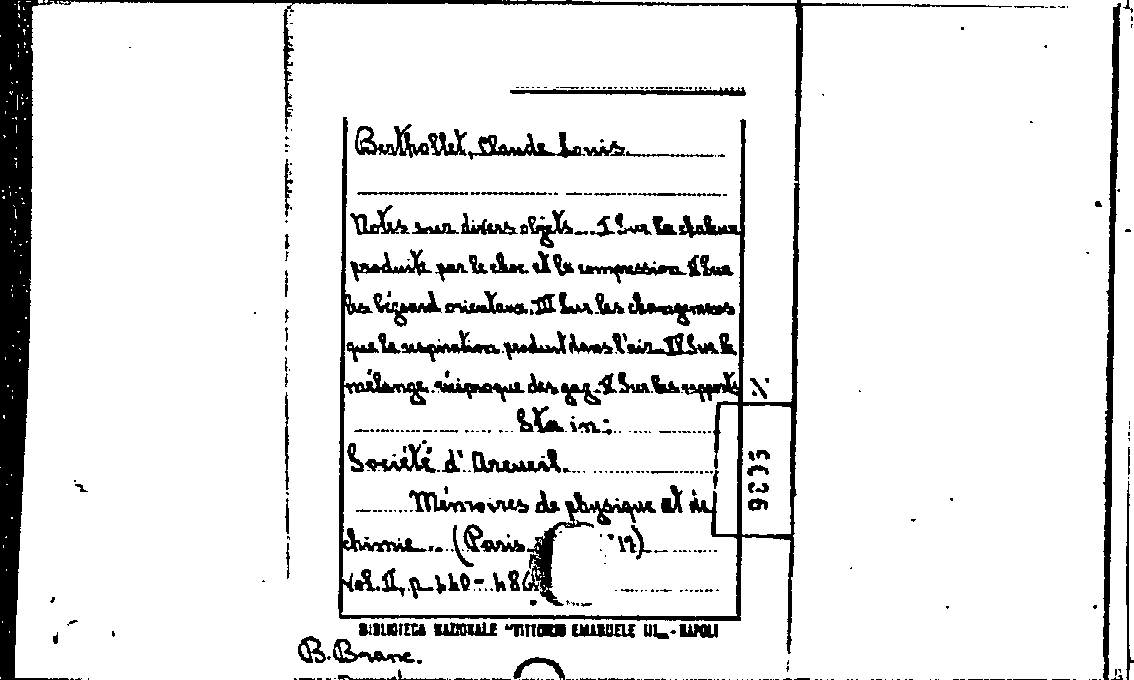 Berthollet, Claude Louis.
Notes sur divers objets... I Sur la chaleur
produite par le choc et la compression II Sur
les bézoard orientaux. III Sur les changemens
que la respiration produit dans l'air. IV Sur le
mélange réciproque des gaz. V Sur les rapports
Sta in:
Société d'Arcueil.
Mémoires de physique et de
chimie... (Paris 17)
vol. II, p. 440-486
BIBLIOTECA NAZIONALE "VITTORIO EMANUELE III" - NAPOLI
B. Branc.